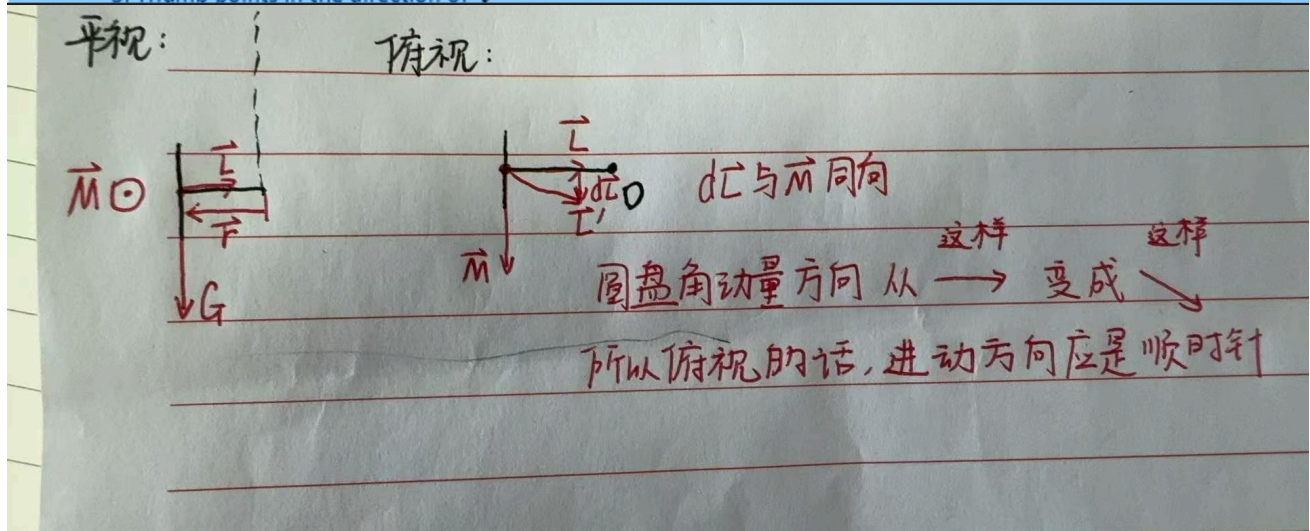 平视: 俯视:
M⃗ ⊙ L⃗ r⃗ G
L⃗ dL⃗ O L⃗' M⃗
dL⃗与M⃗同向
这样 这样
圆盘角动量方向 从 → 变成 ↘
所以俯视的话,进动方向应是顺时针